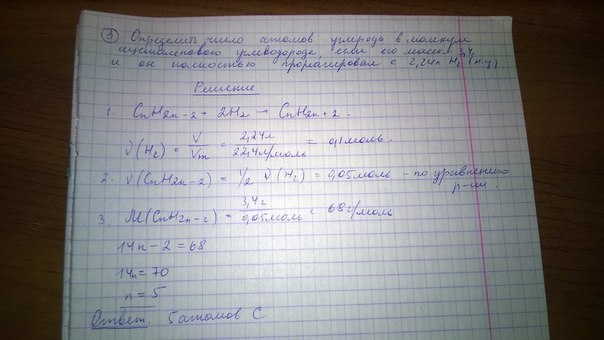 ③ Определить число атомов углерода в молекуле
ацетиленового углеводорода, если его масса
и он полностью прореагировал с 2,24л H2 (н.у.)
Решение
1. CnH2n-2 + 2H2 → CnH2n+2.
ν(H2) = V/Vm = 2,24л/22,4л/моль = 0,1моль.
2. ν(CnH2n-2) = 1/2 ν(H2) = 0,05моль - по уравнению
р-ии.
3. M(CnH2n-2) = 3,4г/0,05моль = 68г/моль
14n-2=68
14n=70
n=5
Ответ. 5атомов C